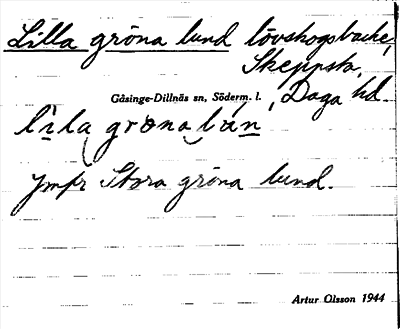 Lilla gröna lund lövskogsbacke,
Skeppsta,
Gåsinge-Dillnäs sn, Söderm. l. , Daga hd.
lìla gröna lún
Jmfr Stora gröna lund.
Artur Olsson 1944